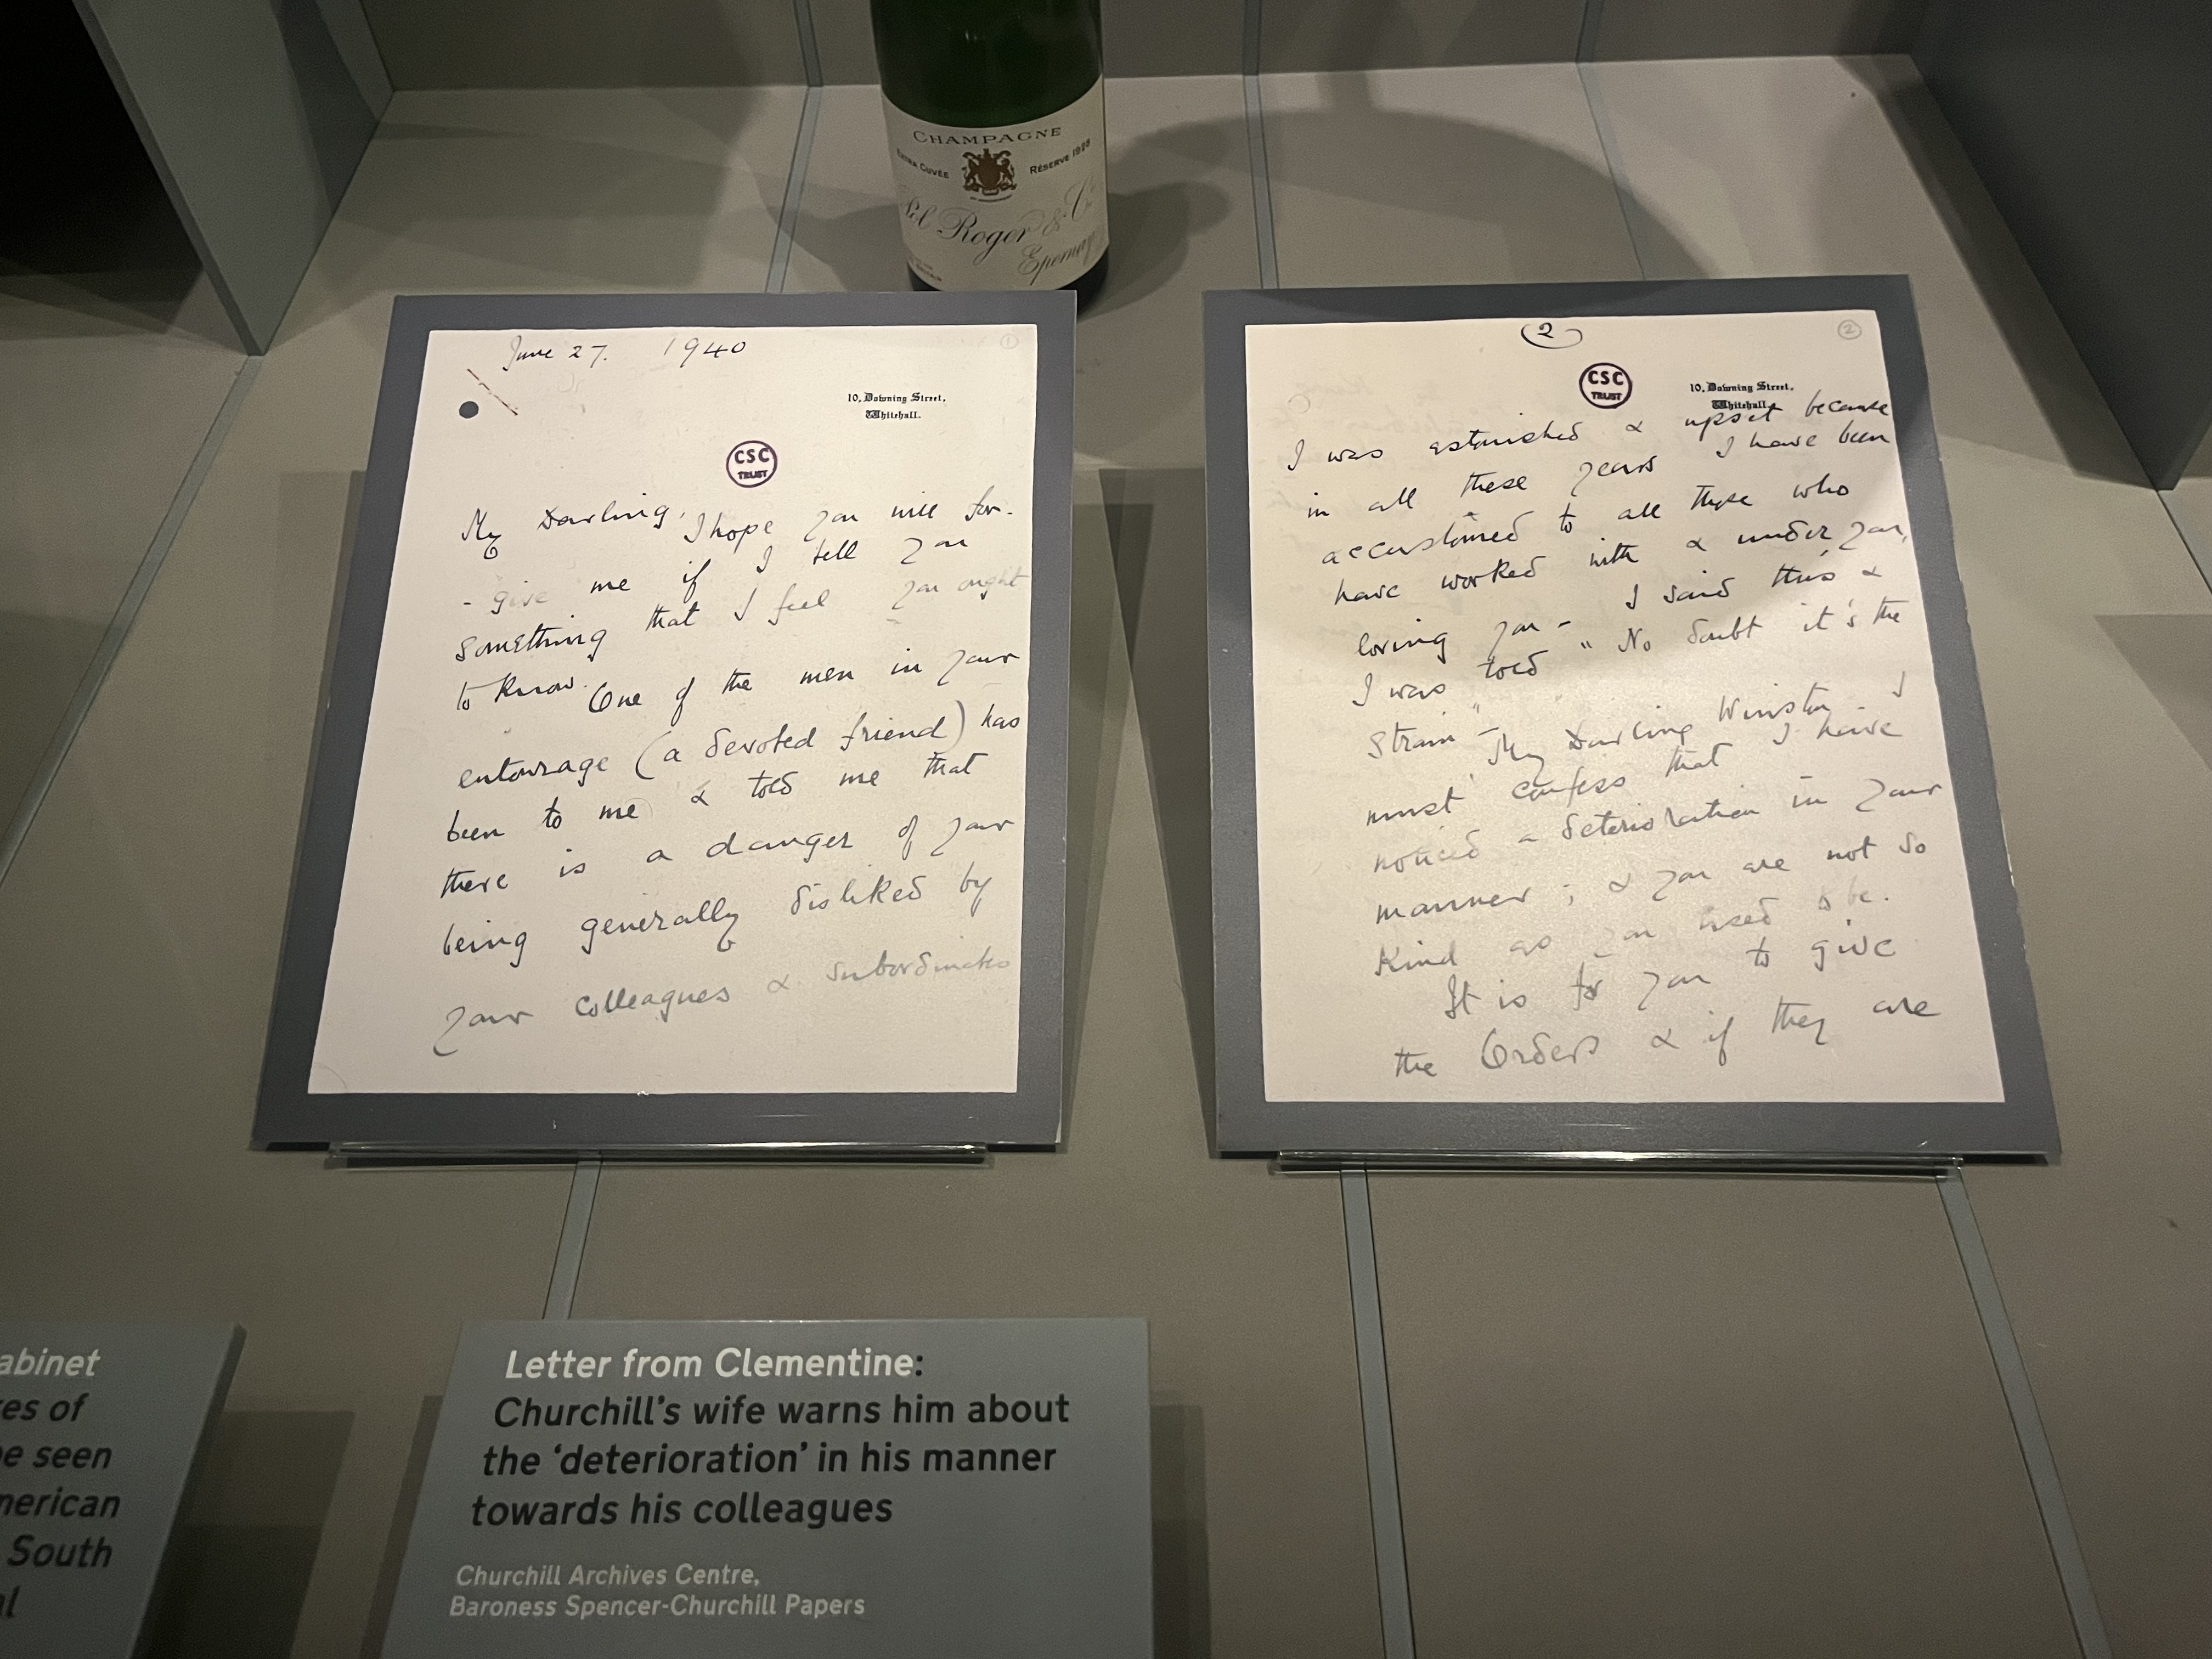 CHAMPAGNE
EXTRA CUVÉE RÉSERVE 1928
Pol Roger & Co
Epernay
June 27. 1940
10, Downing Street,
Whitehall.
CSC
TRUST
My Darling,
I hope you will for-
-give me if I tell you
something that I feel you ought
to know.
One of the men in your
entourage (a devoted friend) has
been to me & told me that
there is a danger of your
being generally disliked by
your colleagues & subordinates
2
2
CSC
TRUST
10, Downing Street,
Whitehall.
I was astonished & upset because
in all these years I have been
accustomed to all those who
have worked with & under you,
loving you - I said this, &
I was told "No doubt it's the
strain" -
My Darling Winston I
must confess that I have
noticed a deterioration in your
manner; & you are not so
kind as you used to be.
It is for you to give
the Orders & if they are
abinet
es of
e seen
merican
South
l
Letter from Clementine:
Churchill's wife warns him about
the 'deterioration' in his manner
towards his colleagues
Churchill Archives Centre,
Baroness Spencer-Churchill Papers